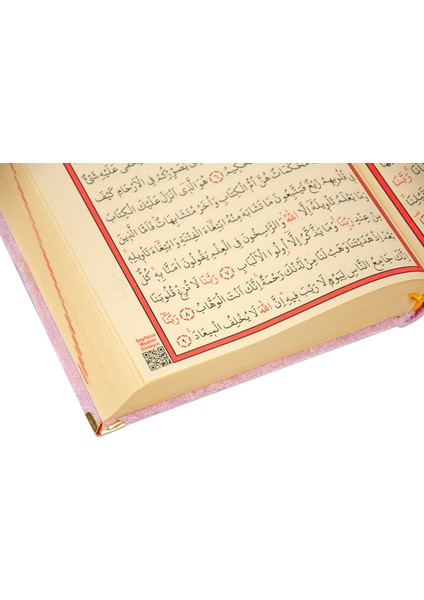 عَلَيْهِ شَيْءٌ
يُصَوِّرُكُمْ فِي الْاَرْحَامِ كَيْفَ
هُوَ الَّذِٓي اَنْزَلَ عَلَيْكَ الْكِتَابَ
مُحْكَمَاتٌ هُنَّ اُمُّ الْكِتَابِ وَاُخَرُ مُتَشَابِهَاتٌ فَاَمَّا الَّذِينَ
فِي قُلُوبِهِمْ زَيْغٌ فَيَتَّبِعُونَ مَا تَشَابَهَ مِنْهُ ابْتِغَٓاءَ الْفِتْنَةِ وَابْتِغَٓاءَ تَأْوِيلِهِ
وَمَا يَعْلَمُ تَأْوِيلَهُٓ اِلَّا اللّٰهُ وَالرَّاسِخُونَ فِي الْعِلْمِ يَقُولُونَ اٰمَنَّا بِهِ كُلٌّ
مِنْ عِنْدِ رَبِّنَا وَمَا يَذَّكَّرُ اِلَّٓا اُولُوا الْاَلْبَابِ ﴿٧﴾ رَبَّنَا لَا تُزِغْ قُلُوبَنَا
بَعْدَ اِذْ هَدَيْتَنَا وَهَبْ لَنَا مِنْ لَدُنْكَ رَحْمَةً اِنَّكَ اَنْتَ الْوَهَّابُ ﴿٨﴾ رَبَّنَٓا
اِنَّكَ جَامِعُ النَّاسِ لِيَوْمٍ لَا رَيْبَ فِيهِ اِنَّ اللّٰهَ لَا يُخْلِفُ الْمِيعَادَ ﴿٩﴾
Sayfanın
Mealini
Dinleyin
رَبَّنَا